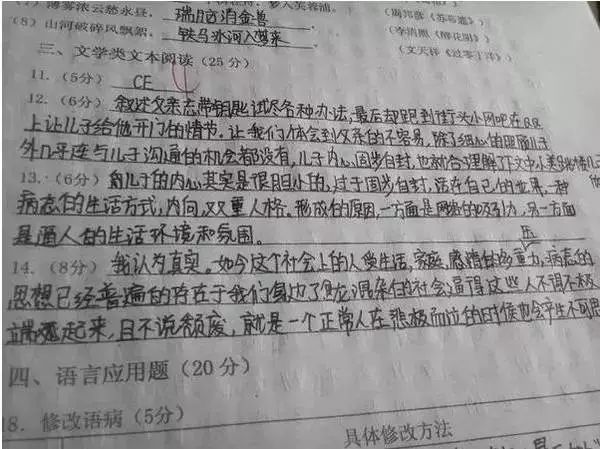 (7) 薄雾浓云愁永昼，瑞脑消金兽 (李清照《醉花阴》)
(8) 山河破碎风飘絮，铁马冰河入梦来 (文天祥《过零丁洋》)
三、文学类文本阅读(25分)
11. (5分) CE
12. (6分) 叙述父亲忘带钥匙试尽各种办法，最后却跑到街头小网吧在QQ
上让儿子给他开门的情节。让我们体会到父亲的不容易，除了细心的照顾儿子
外几乎连与儿子沟通的机会都没有，儿子内心固步自封，也就合理解了下文中
13. (6分) 儿子的内心其实是很胆小的，过于固步自封，活在自己的世界，一种
病态的生活方式，内向，双重人格。形成的原因，一方面是网络的吸引力，另一方面
是逼人的生活环境和氛围。
14. (8分) 我认为真实。如今这个社会上的人受生活，家庭，感情的多重压力，病态的
思想已经普遍的存在于我们身边了，龙混杂的社会逼得这些人不得不极
端起来，且不说颓废，就是一个正常人在悲极而泣的时候也会产生不可思
四、语言应用题(20分)
18. 修改语病(5分)
具体修改方法